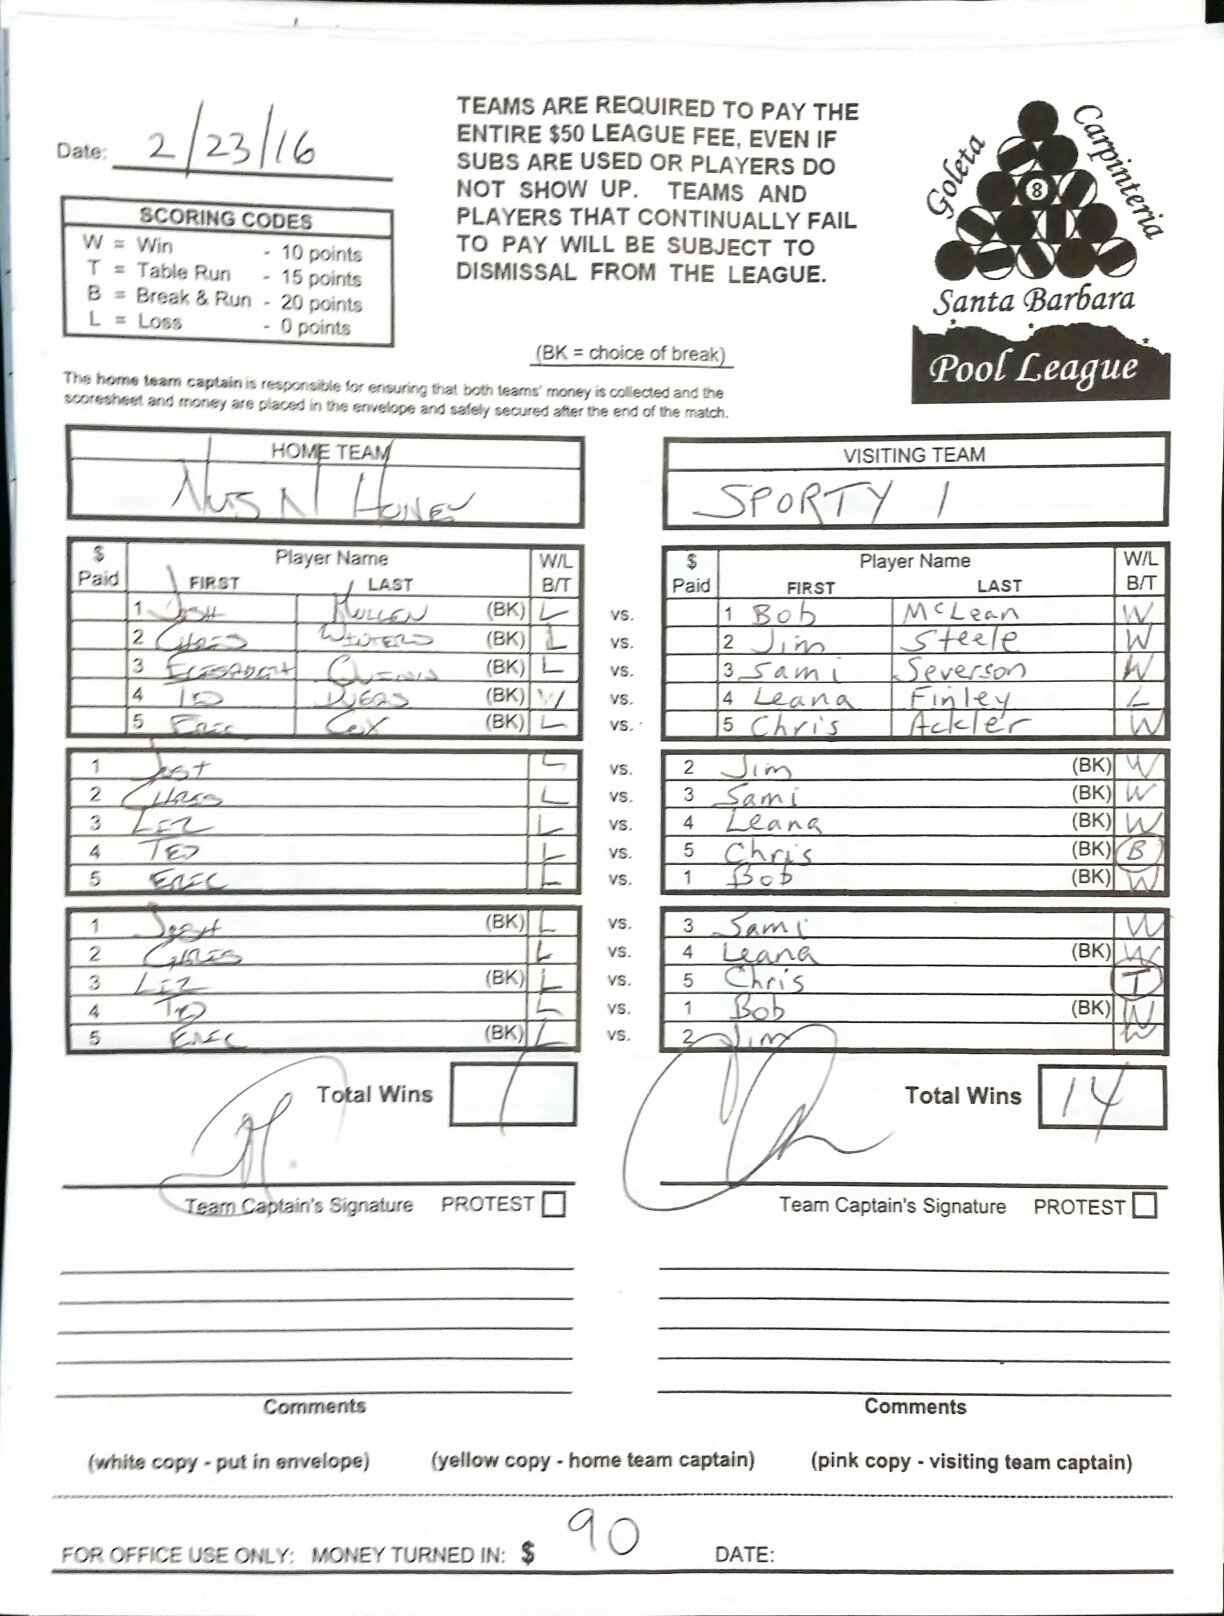 Date: 2/23/16
TEAMS ARE REQUIRED TO PAY THE
ENTIRE $50 LEAGUE FEE, EVEN IF
SUBS ARE USED OR PLAYERS DO
NOT SHOW UP. TEAMS AND
PLAYERS THAT CONTINUALLY FAIL
TO PAY WILL BE SUBJECT TO
DISMISSAL FROM THE LEAGUE.
Goleta
Carpinteria
8
Santa Barbara
Pool League
SCORING CODES
W = Win - 10 points
T = Table Run - 15 points
B = Break & Run - 20 points
L = Loss - 0 points
(BK = choice of break)
The home team captain is responsible for ensuring that both teams' money is collected and the
scoresheet and money are placed in the envelope and safely secured after the end of the match.
HOME TEAM VISITING TEAM
NUTS N HONEY SPORTY 1
$ Paid Player Name FIRST LAST W/L B/T $ Paid Player Name FIRST LAST W/L B/T
1 JOSH MULLEN (BK) L vs. 1 Bob McLean W
2 CHRIS WINTERS (BK) L vs. 2 Jim Steele W
3 QUINN (BK) L vs. 3 Sami Severson W
4 TED (BK) W vs. 4 Leana Finley L
5 ERIC COX (BK) L vs. 5 Chris Ackler W
1 JOSH L vs. 2 Jim (BK) W
2 CHRIS L vs. 3 Sami (BK) W
3 LIZ L vs. 4 Leana (BK) W
4 TED L vs. 5 Chris (BK) B
5 ERIC L vs. 1 Bob (BK) W
1 JOSH (BK) L vs. 3 Sami W
2 CHRIS L vs. 4 Leana (BK) W
3 LIZ (BK) L vs. 5 Chris T
4 TED L vs. 1 Bob (BK) W
5 ERIC (BK) L vs. 2 Jim W
Total Wins 1 Total Wins 14
Team Captain's Signature PROTEST Team Captain's Signature PROTEST
Comments Comments
(white copy - put in envelope) (yellow copy - home team captain) (pink copy - visiting team captain)
FOR OFFICE USE ONLY: MONEY TURNED IN: $ 90 DATE: